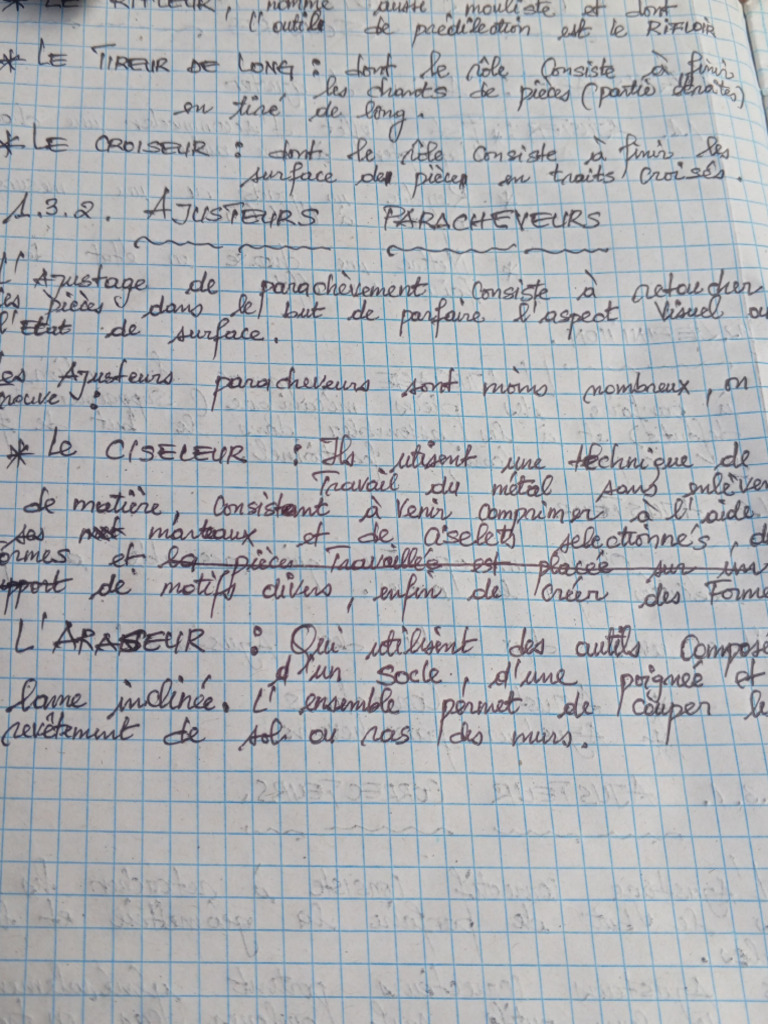 * LE RIFLEUR, nommé aussi mouliste et dont
l'outils de prédilection est le RIFLOIR
* LE TIREUR DE LONG : dont le rôle consiste à finir
les chants de pièces (partie droites)
en tiré de long.
* LE CROISEUR : dont le rôle consiste à finir les
surface des pièces en traits croisés.
1.3.2. AJUSTEURS PARACHEVEURS
L'Ajustage de parachèvement consiste à retoucher
les pièces dans le but de parfaire l'aspect visuel ou
l'Etat de surface.
es Ajusteurs paracheveurs sont moins nombreux, on
rouve :
* Le CISELEUR : Ils utisent une technique de
Travail du métal sans enlever
de matière, consistant à venir comprimer à l'aide
marteaux et de ciselets selectionnés, d
ormes et la pièces Travaillée est placée sur un
upport de motifs divers, enfin de créer des Forme
L'ARASEUR : Qui utilisent des outils composé
d'un socle, d'une poigneé et
lame inclinée. L'ensemble permet de couper le
revêtement de sol ou ras des murs.